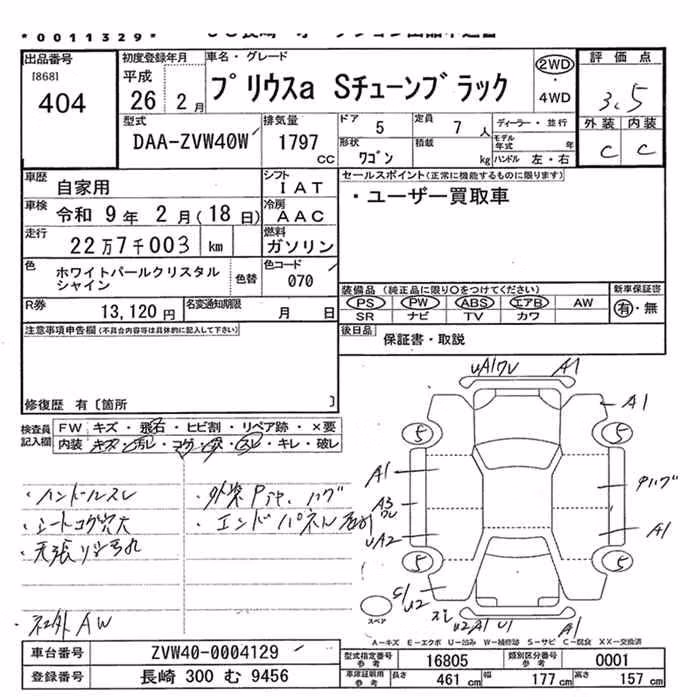 *0011329*
出品番号
[868]
404
初度登録年月
平成
26 2月
車名・グレード
プリウスα Sチューンブラック
2WD
4WD
評価点
3.5
外装 内装
C C
型式
DAA-ZVW40W
排気量
1797 cc
ドア 5
定員 7人
形状 ワゴン
積載 kg
ディーラー・並行
モデル年式 年
ハンドル 左・右
車歴 自家用
シフト IAT
車検 令和 9年 2月(18日)
冷房 AAC
走行 22万7千003 km
燃料 ガソリン
色 ホワイトパールクリスタルシャイン
色替
色コード 070
R券 13,120円
名変通知期限 月 日
セールスポイント(正常に機能するものに限ります)
・ユーザー買取車
装備品(純正品に限り○をつけてください)
PS PW ABS エアB AW
SR ナビ TV カワ
新車保証書
有・無
後日品 保証書・取説
注意事項申告欄(不具合内容等は具体的に記入して下さい)
修復歴 有〔箇所 〕
検査員記入欄
FW キズ・飛石・ヒビ割・リペア跡・×要
内装 キズ・汚レ・コゲ・穴・スレ・キレ・破レ
・ハンドルスレ
・シートコゲ穴大
・天張り汚れ
・社外AW
・エンドパネル
UA1 A1
A1
5 5
A1
A3
UA2
A1
5 5
U2
U2 A1 U1
A1
スペア
A−キズ E−エクボ U−凹み W−補修跡 S−サビ C−腐食 XX−交換済
車台番号 ZVW40-0004129
登録番号 長崎 300 む 9456
型式指定番号 参考 16805
類別区分番号 参考 0001
車庫証明用 参考
長さ 461 cm
幅 177 cm
高さ 157 cm